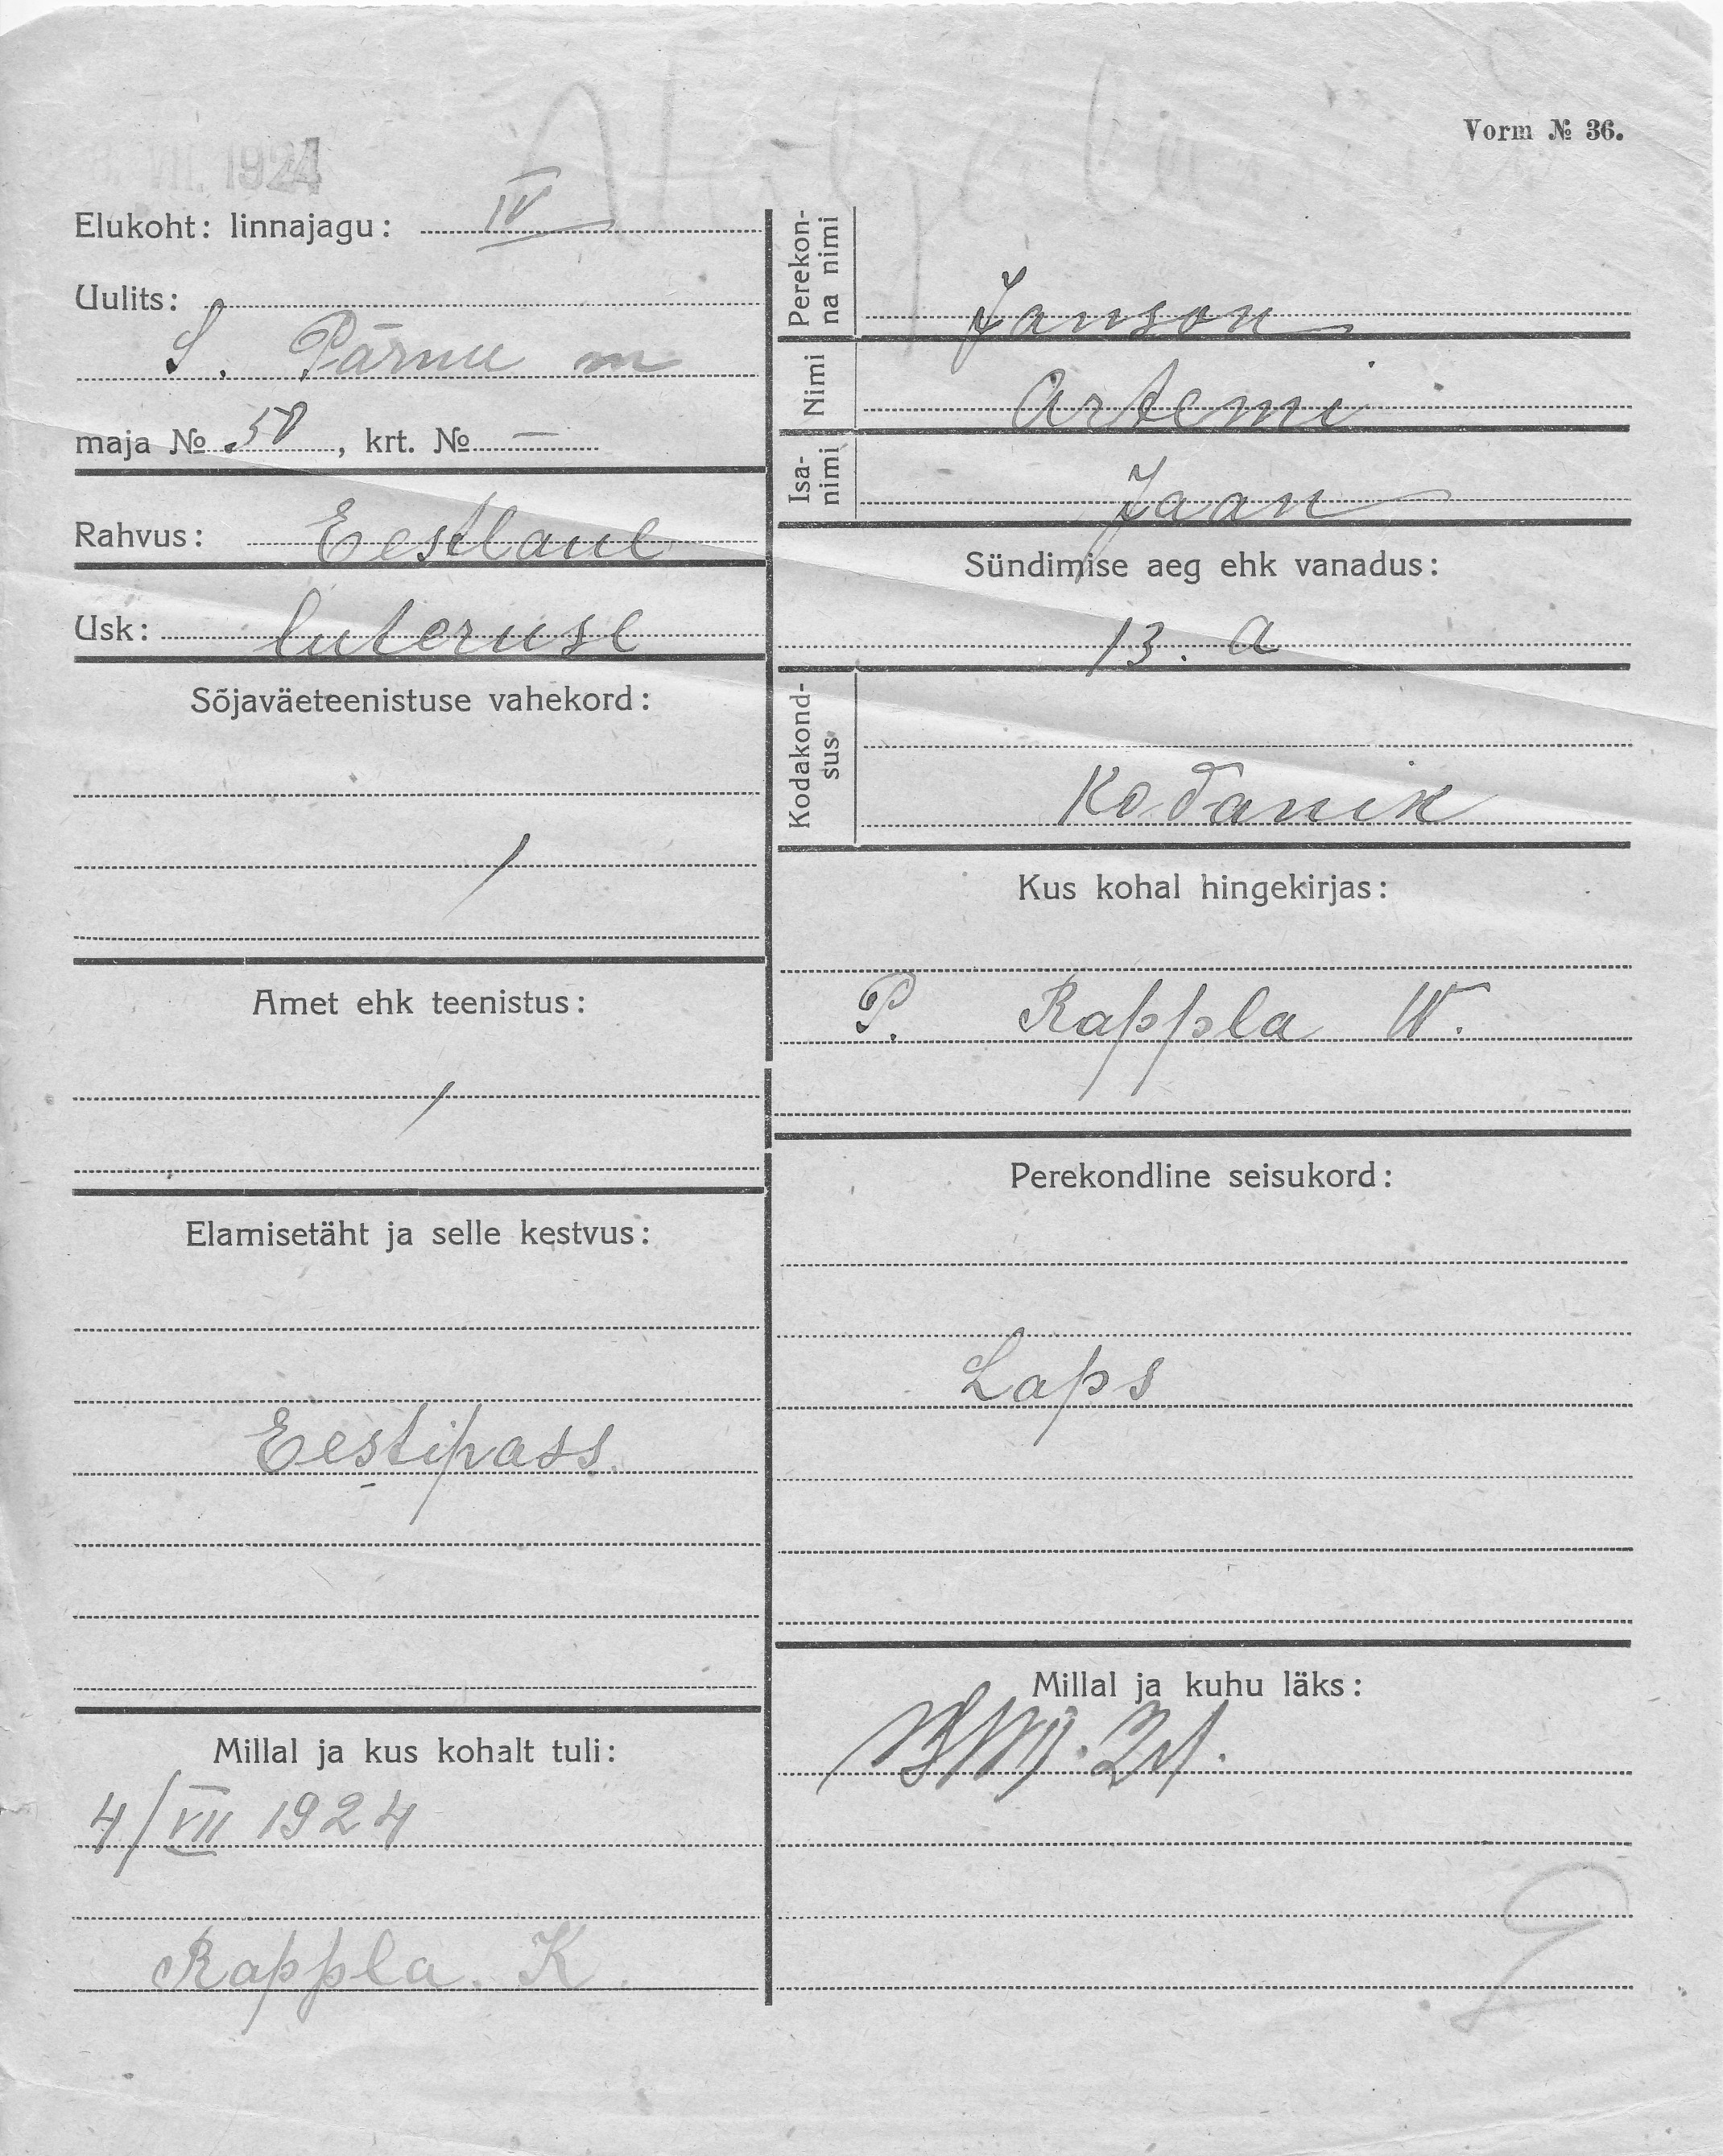 Vorm № 36.
VII. 1924
Elukoht: linnajagu: IV
Uulits:
S. Pärnu m
maja № 50, krt. № —
Rahvus: Eestlane
Usk: luteruse
Sõjaväeteenistuse vahekord:
/
Amet ehk teenistus:
/
Elamisetäht ja selle kestvus:
Eestipass.
Millal ja kus kohalt tuli:
4/VII 1924
Rappla. K.
Perekonna nimi Janson
Nimi Artemi
Isanimi Jaan
Sündimise aeg ehk vanadus:
13. a
Kodakondsus
Kodanik
Kus kohal hingekirjas:
P. Rappla W.
Perekondline seisukord:
Laps
Millal ja kuhu läks: